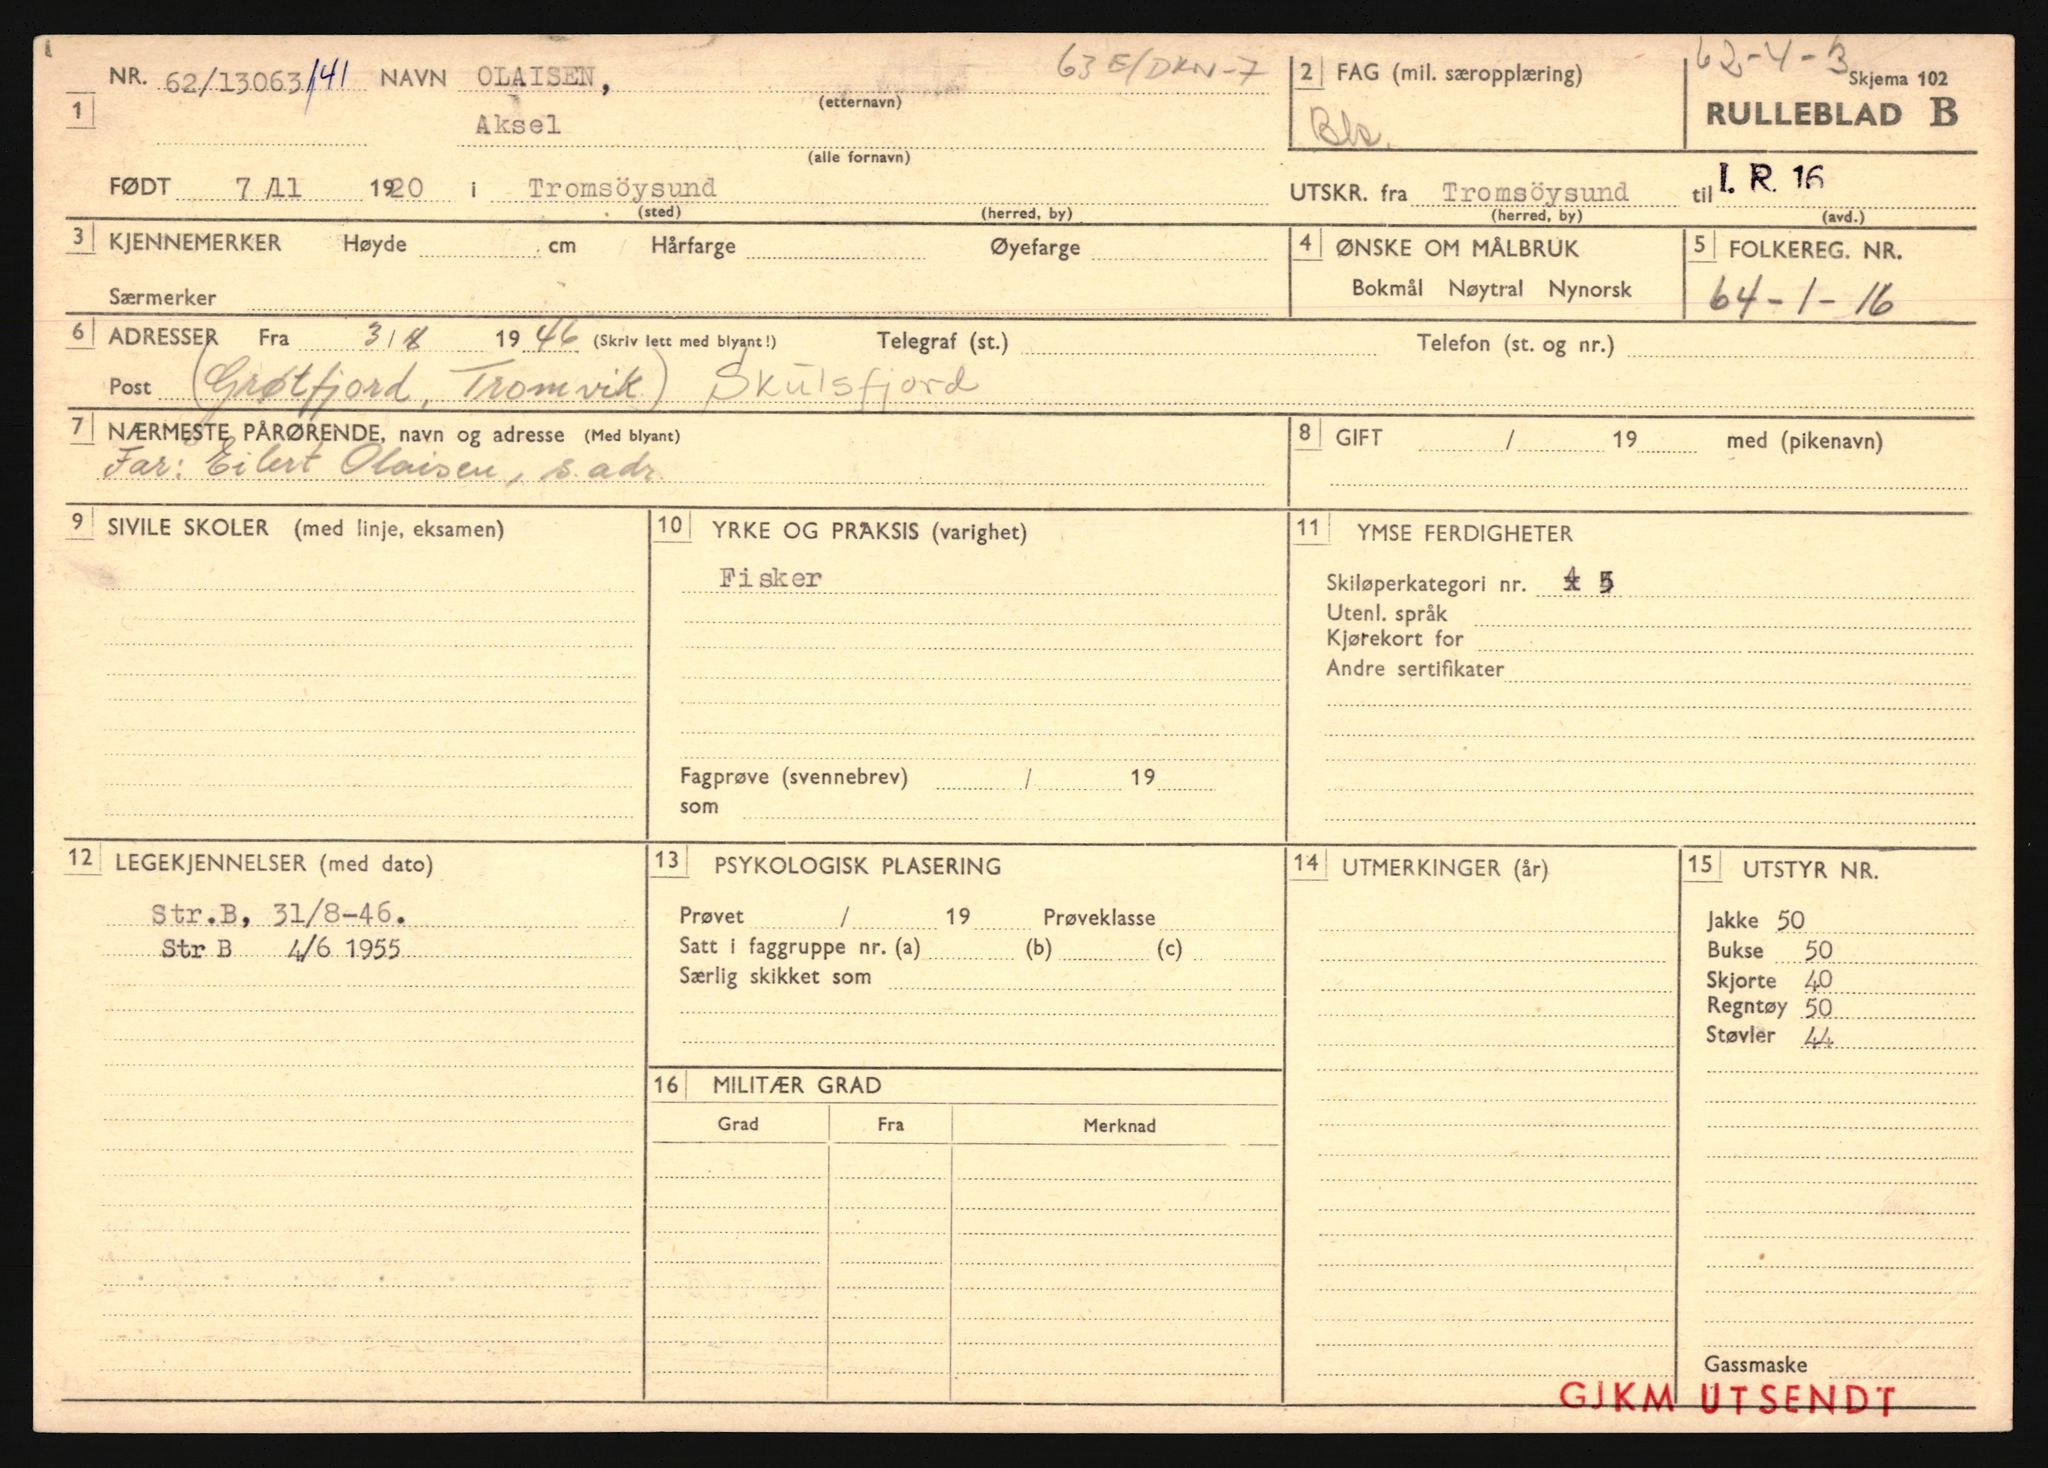 63 E/DKN-7
62-4-3
1 NR. 62/13063/41 NAVN OLAISEN,
(etternavn)
Aksel
(alle fornavn)
FØDT 7/11 1920 i Tromsöysund
(sted) (herred, by)
2 FAG (mil. særopplæring)
Skjema 102
RULLEBLAD B
UTSKR. fra Tromsöysund til I. R. 16
(herred, by) (avd.)
3 KJENNEMERKER Høyde cm Hårfarge Øyefarge
Særmerker
4 ØNSKE OM MÅLBRUK
Bokmål Nøytral Nynorsk
5 FOLKEREG. NR.
64-1-16
6 ADRESSER Fra 3/8 1946 (Skriv lett med blyant!) Telegraf (st.) Telefon (st. og nr.)
Post (Grøtfjord, Tromvik) Skulsfjord
7 NÆRMESTE PÅRØRENDE, navn og adresse (Med blyant)
Far: Eilert Olaisen, s. adr.
8 GIFT / 19 med (pikenavn)
9 SIVILE SKOLER (med linje, eksamen)
10 YRKE OG PRAKSIS (varighet)
Fisker
Fagprøve (svennebrev) / 19
som
11 YMSE FERDIGHETER
Skiløperkategori nr. 4 5
Utenl. språk
Kjørekort for
Andre sertifikater
12 LEGEKJENNELSER (med dato)
Str.B, 31/8-46.
Str B 4/6 1955
13 PSYKOLOGISK PLASERING
Prøvet / 19 Prøveklasse
Satt i faggruppe nr. (a) (b) (c)
Særlig skikket som
16 MILITÆR GRAD
Grad Fra Merknad
14 UTMERKINGER (år)
15 UTSTYR NR.
Jakke 50
Bukse 50
Skjorte 40
Regntøy 50
Støvler 44
Gassmaske
GJKM UTSENDT